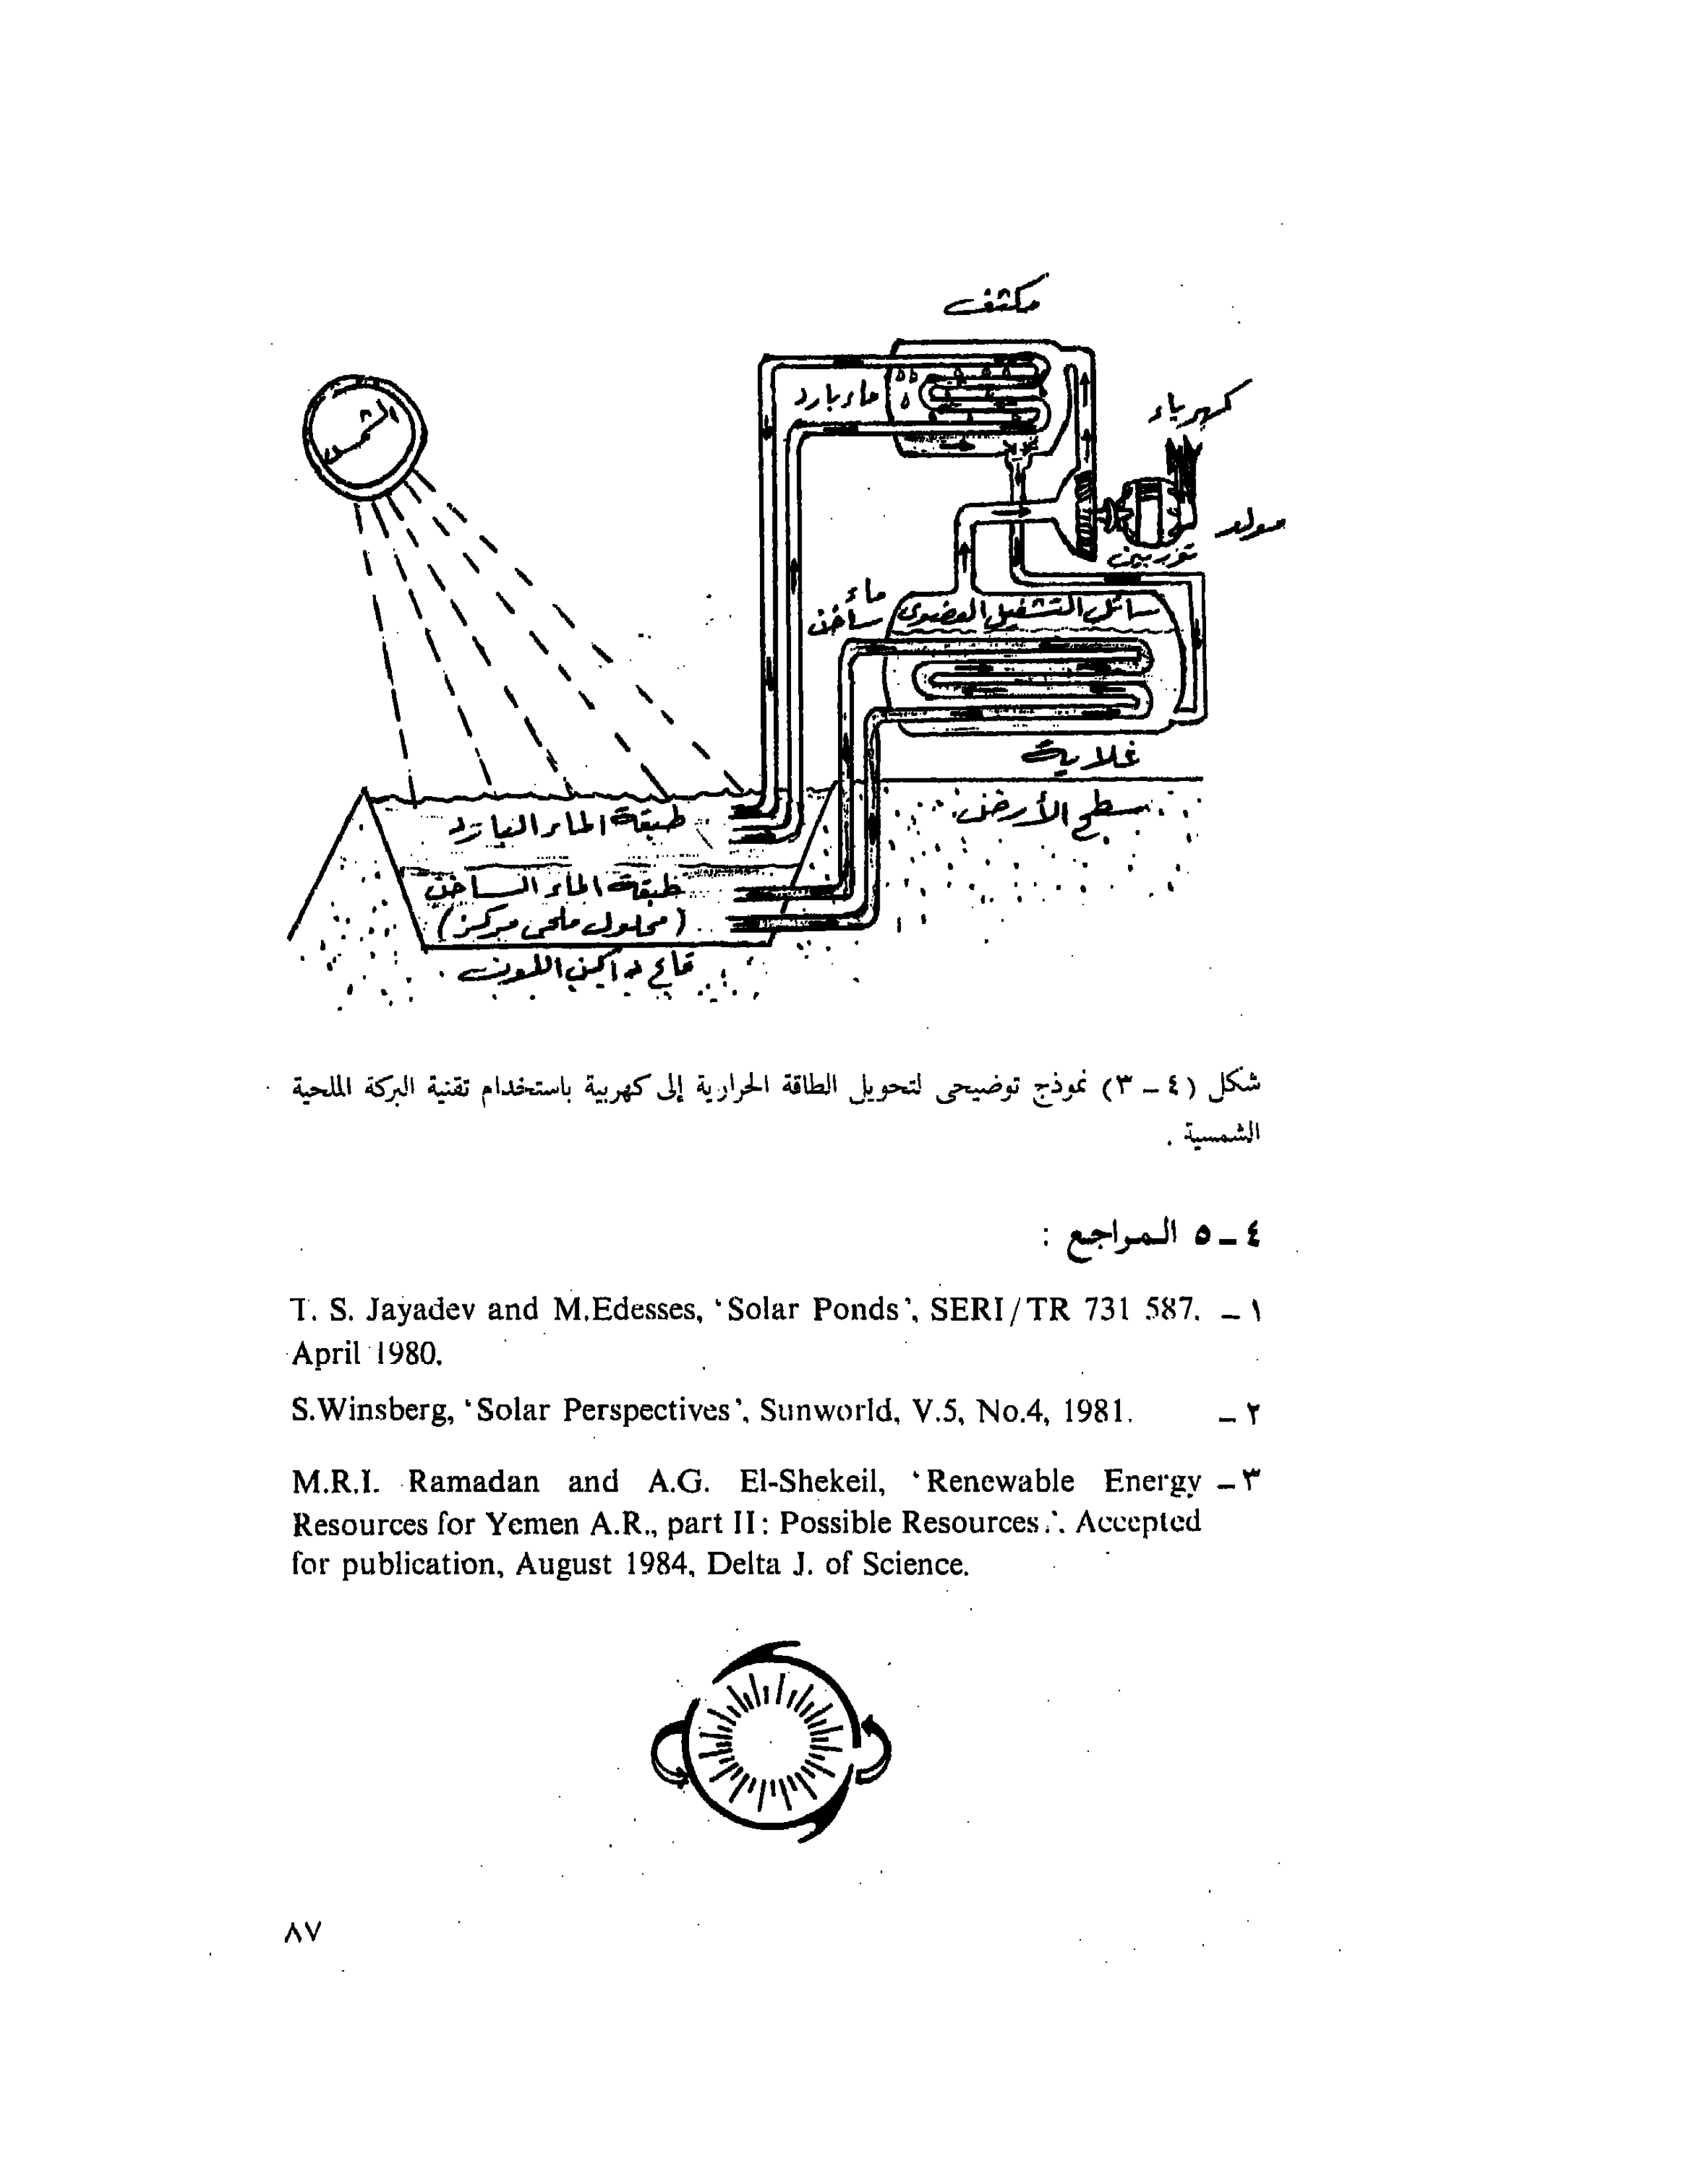 مكثف
الشمس
ماء بارد
كهرباء
مولد
توربين
ماء
ساخن
سائل التشغيل العضوى
غلاية
سطح الأرض
طبقة الماء البارد
طبقة الماء الساخن
(محلول ملحى مركز)
قاع داكن اللون
شكل (٤ – ٣) نموذج توضيحى لتحويل الطاقة الحرارية إلى كهربية باستخدام تقنية البركة الملحية
الشمسية .
٤ – ٥ المراجع :
١ – T. S. Jayadev and M.Edesses, 'Solar Ponds', SERI/TR 731 587.
April 1980.
٢ – S.Winsberg, 'Solar Perspectives', Sunworld, V.5, No.4, 1981.
٣ – M.R.I. Ramadan and A.G. El-Shekeil, 'Renewable Energy
Resources for Yemen A.R., part II: Possible Resources.'. Accepted
for publication, August 1984, Delta J. of Science.
٨٧